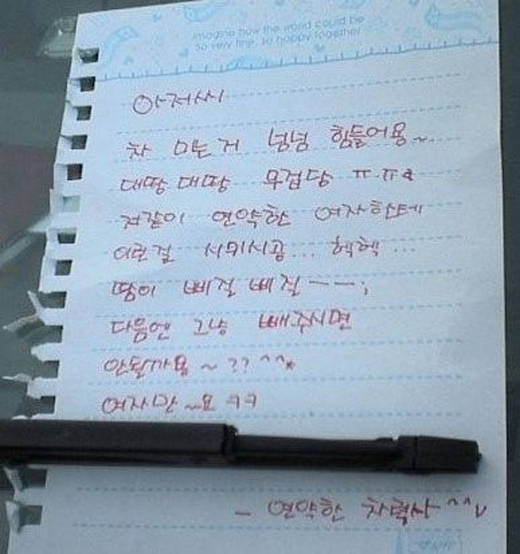 Imagine how the world could be
So very fine, so happy together
아저씨
차 미는거 넘넘 힘들어용~
대땅 대땅 무겁당 ㅠ.ㅠa
저같이 연약한 여자한테
이런걸 시키시공... 헥헥...
땀이 삐질 삐질 ㅡㅡ;
다음엔 그냥 빼주시면
안될까용 ~?? ^^*
여자니깐~요 ㅋㅋ
- 연약한 차력사 ^^v